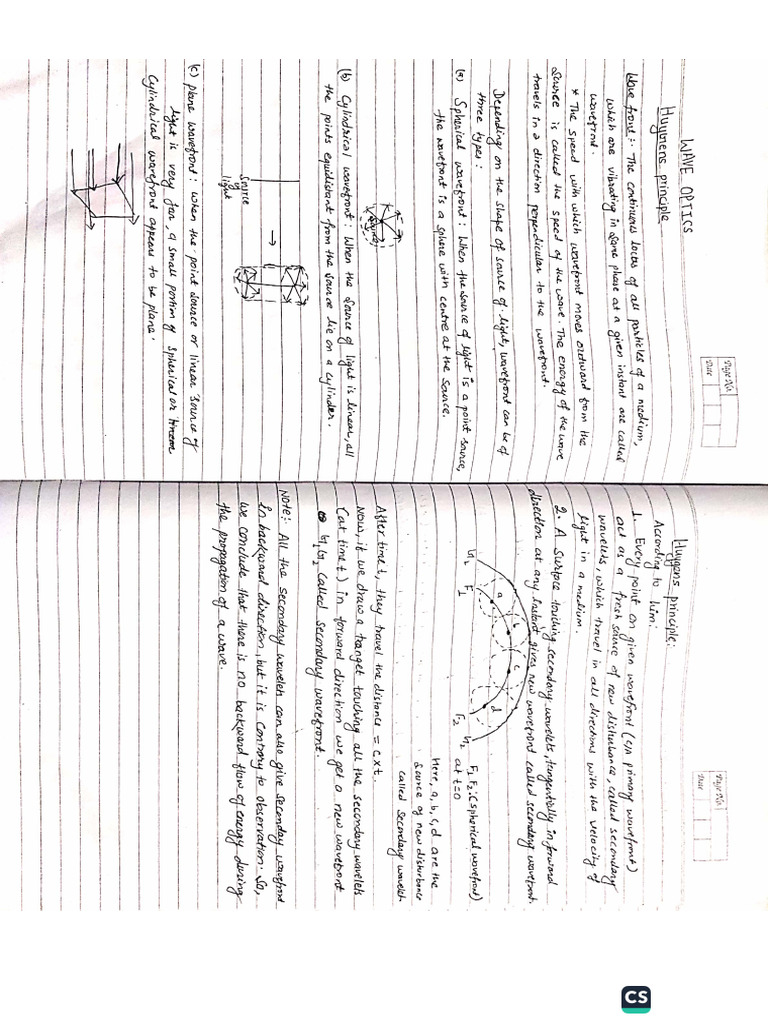 Page No.
Date
WAVE OPTICS
Huyghens principle
Wave front :- The continuous locus of all particles of a medium,
which are vibrating in same phase at a given instant are called
wavefront.
* The speed with which wavefront moves outward from the
source is called the speed of the wave. The energy of the wave
travels in a direction perpendicular to the wavefront.
Depending on the shape of source of light, wavefront can be of
three types :
(a) Spherical wavefront : When the source of light is a point source,
the wavefront is a sphere with centre at the source.
source
(b) Cylindrical wavefront : When the source of light is linear, all
the points equidistant from the source lie on a cylinder.
Source
of
light
(c) plane wavefront : When the point source or linear source of
light is very far, a small portion of spherical or
cylindrical wavefront appears to be plane.
Page No.
Date
Huygens principle:
According to him:
1. Every point on given wavefront (c/a primary wavefront)
act as a fresh source of new disturbance, called secondary
wavelets, which travel in all directions with the velocity of
light in a medium.
2. A Surface touching secondary wavelets, tangentially in forward
direction at any instant gives new wavefront called secondary wavefront.
G2 F1 a b c d F2 G2
F1 F2 : (spherical wavefront)
at t=0
Here, a, b, c, d are the
source of new disturbance
called secondary wavelet
After time t, they travel the distance = c x t.
Now, if we draw a tanget touching all the secondary wavelets
(at time t) in forward direction we get a new wavefront
G1 G2 called secondary wavefront.
Note:- All the secondary wavelets can also give secondary wavefront
in backward direction, but it is contrary to observation. So,
we conclude that there is no backward flow of energy during
the propagation of a wave.
CS